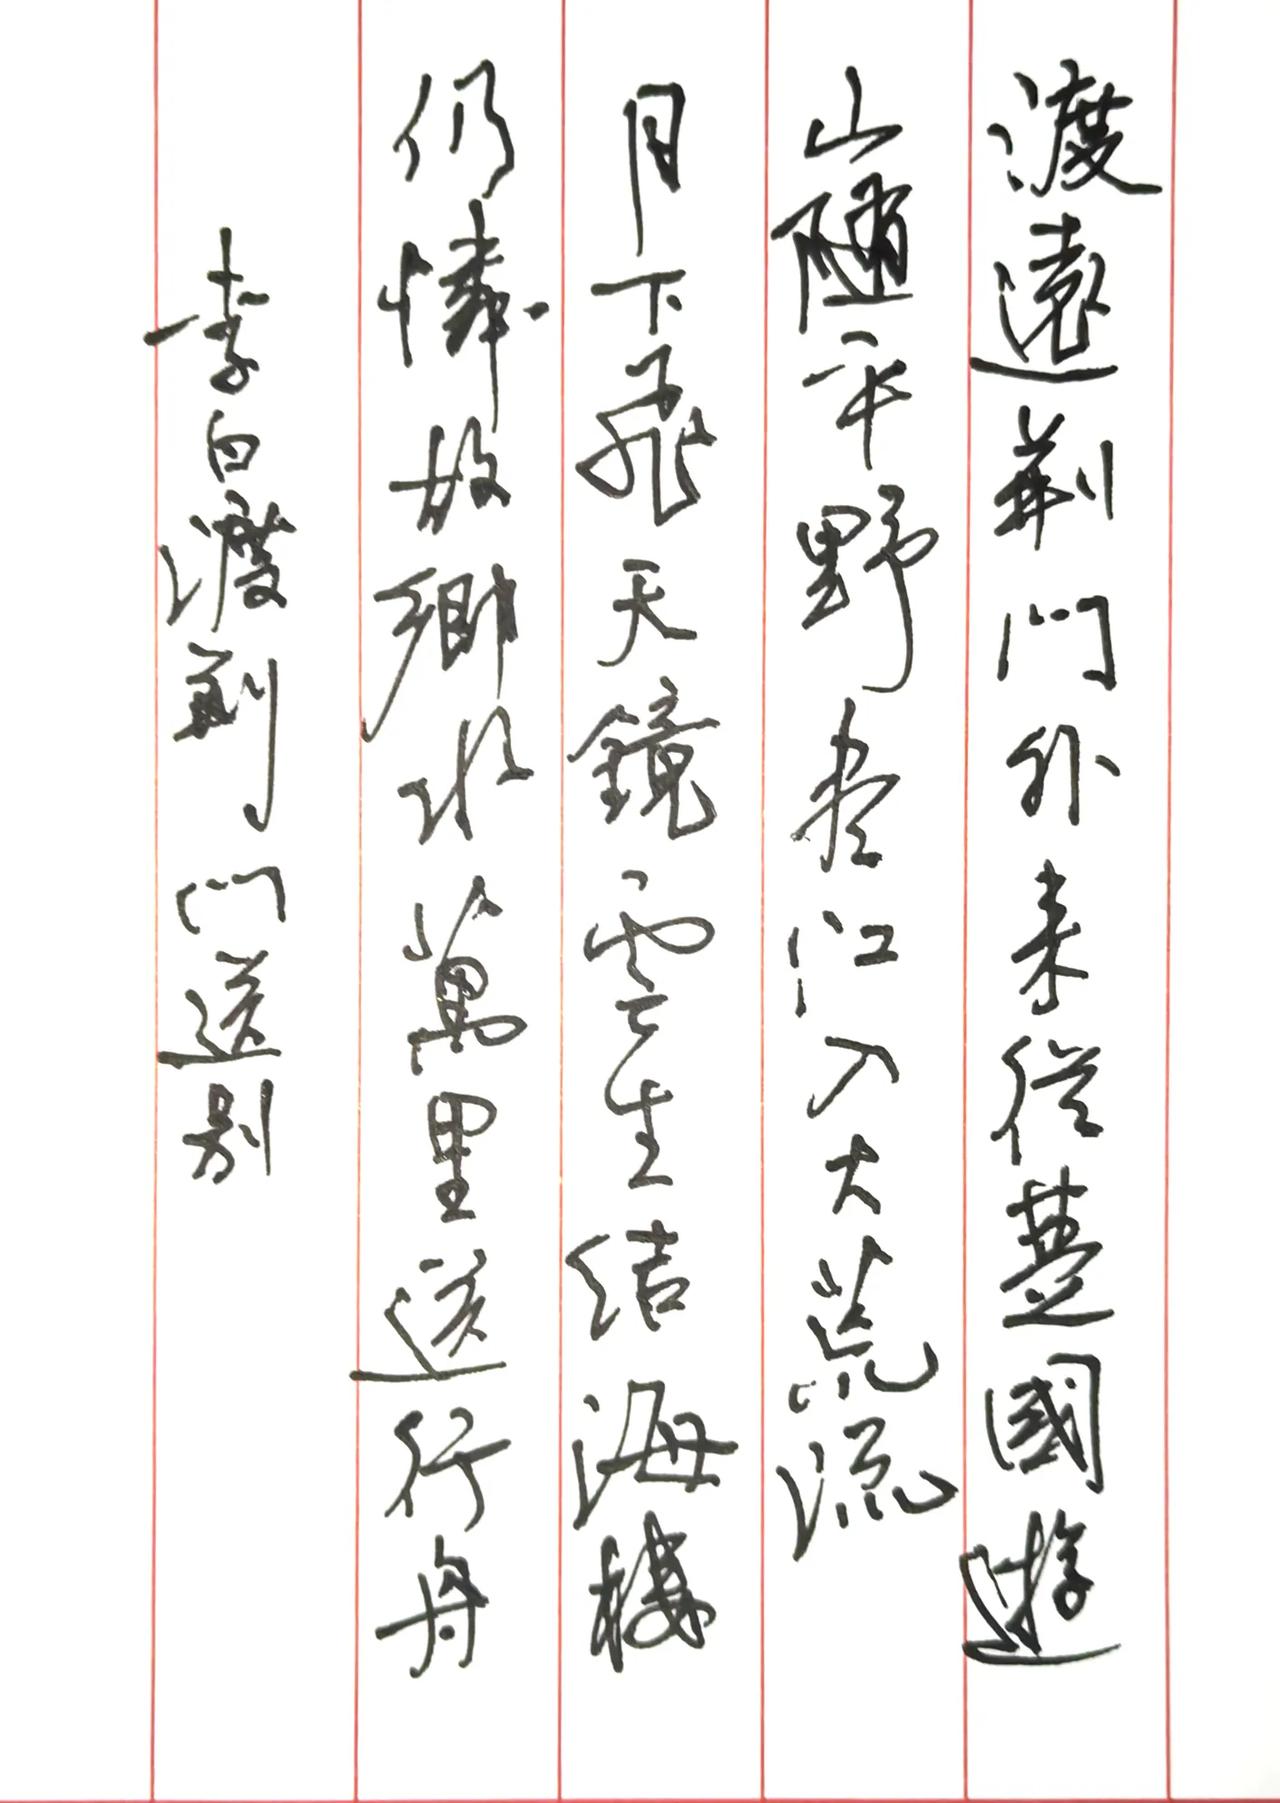 渡遠荊門外来從楚國遊
山隨平野盡江入大荒流
月下飛天鏡雲生結海樓
仍憐故鄉水萬里送行舟
李白渡荊門送別